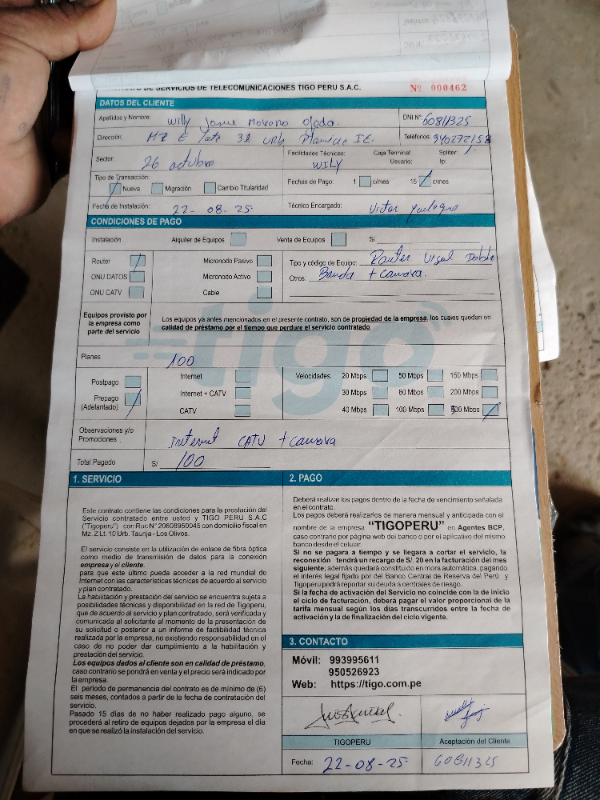 DE SERVICIOS DE TELECOMUNICACIONES TIGO PERU S.A.C. Nº 000462
DATOS DEL CLIENTE
Apellidos y Nombre: Willy Josue Moreno Ojeda. DNI Nº 60811325
Dirección: MZ E Lote 38 Urb. IE. Teléfonos:
Sector: 26 octubre Facilidades Técnicas: WILY Caja Terminal Usuario: Spliter Ip:
Tipo de Transacción: Nueva Migración Cambio Titularidad Fechas de Pago: 1 c/mes 15 c/mes
Fecha de Instalación: 22-08-25 Técnico Encargado: Victor
CONDICIONES DE PAGO
Instalación Alquiler de Equipos Venta de Equipos S/.
Router Microondo Pasivo Tipo y código de Equipo: Router
ONU DATOS Microondo Activo Otros: Banda + camara.
ONU CATV Cable
Equipos provisto por la empresa como parte del servicio
Los equipos ya antes mencionados en el presente contrato, son de propiedad de la empresa, los cuales quedan en
calidad de préstamo por el tiempo que perdure el servicio contratado
tigo
Planes 100
Postpago Internet Velocidades: 20 Mbps 50 Mbps 150 Mbps
Prepago (Adelantado) Internet + CATV 30 Mbps 60 Mbps 200 Mbps
CATV 40 Mbps 100 Mbps 500 Mbps
Observaciones y/o Promociones: Internet CATV + camara
Total Pagado S/ 100
1. SERVICIO
Este contrato contiene las condiciones para la prestación del
Servicio contratado entre usted y TIGO PERU S.A.C
("Tigoperu") con Ruc N° 20608950045 con domicilio fiscal en
Mz. Z Lt. 10 Urb. Taurija - Los Olivos.
El servicio consiste en la utilización de enlace de fibra óptica
como medio de transmisión de datos para la conexión
empresa y el cliente.
para que este último pueda acceder a la red mundial de
Internet con las características técnicas de acuerdo al servicio
y plan contratado.
La habilitación y prestación del servicio se encuentra sujeta a
posibilidades técnicas y disponibilidad en la red de Tigoperu,
que de acuerdo al servicio y plan contratado, será verificada y
comunicada al solicitante al momento de la presentación de
su solicitud o posterior a un informe de factibilidad técnica
realizada por la empresa, no existiendo responsabilidad en el
caso de no poder dar cumplimiento a la habilitación y
prestación del servicio.
Los equipos dados al cliente son en calidad de préstamo,
caso contrario se pondrá en venta y el precio será indicado por
la empresa.
El periodo de permanencia del contrato es de mínimo de (6)
seis meses, contados a partir de la fecha de contratación del
servicio.
Pasado 15 días de no haber realizado pago alguno, se
procederá al retiro de equipos dejados por la empresa el día
en que se realizó la instalación del servicio.
2. PAGO
Deberá realizar los pagos dentro de la fecha de vencimiento señalada
en el contrato.
Los pagos deberá realizarlos de manera mensual y anticipada con el
nombre de la empresa "TIGOPERU" en Agentes BCP,
caso contrario por página web del banco o por el aplicativo del mismo
banco desde el celular.
Si no se pagara a tiempo y se llegara a cortar el servicio, la
reconexión tendrá un recargo de S/ 20 en la facturación del mes
siguiente; además quedará constituido en mora automática, pagando
el interés legal fijado por del Banco Central de Reserva del Perú y
Tigoperu podrá reportar su deuda a centrales de riesgo.
Si la fecha de activación del Servicio no coincide con la de inicio
el ciclo de facturación, deberá pagar el valor proporcional de la
tarifa mensual según los días transcurridos entre la fecha de
activación y la de finalización del ciclo vigente.
3. CONTACTO
Móvil: 993995611
950526923
Web: https://tigo.com.pe
TIGOPERU Aceptación del Cliente
Fecha: 22-08-25 60811325